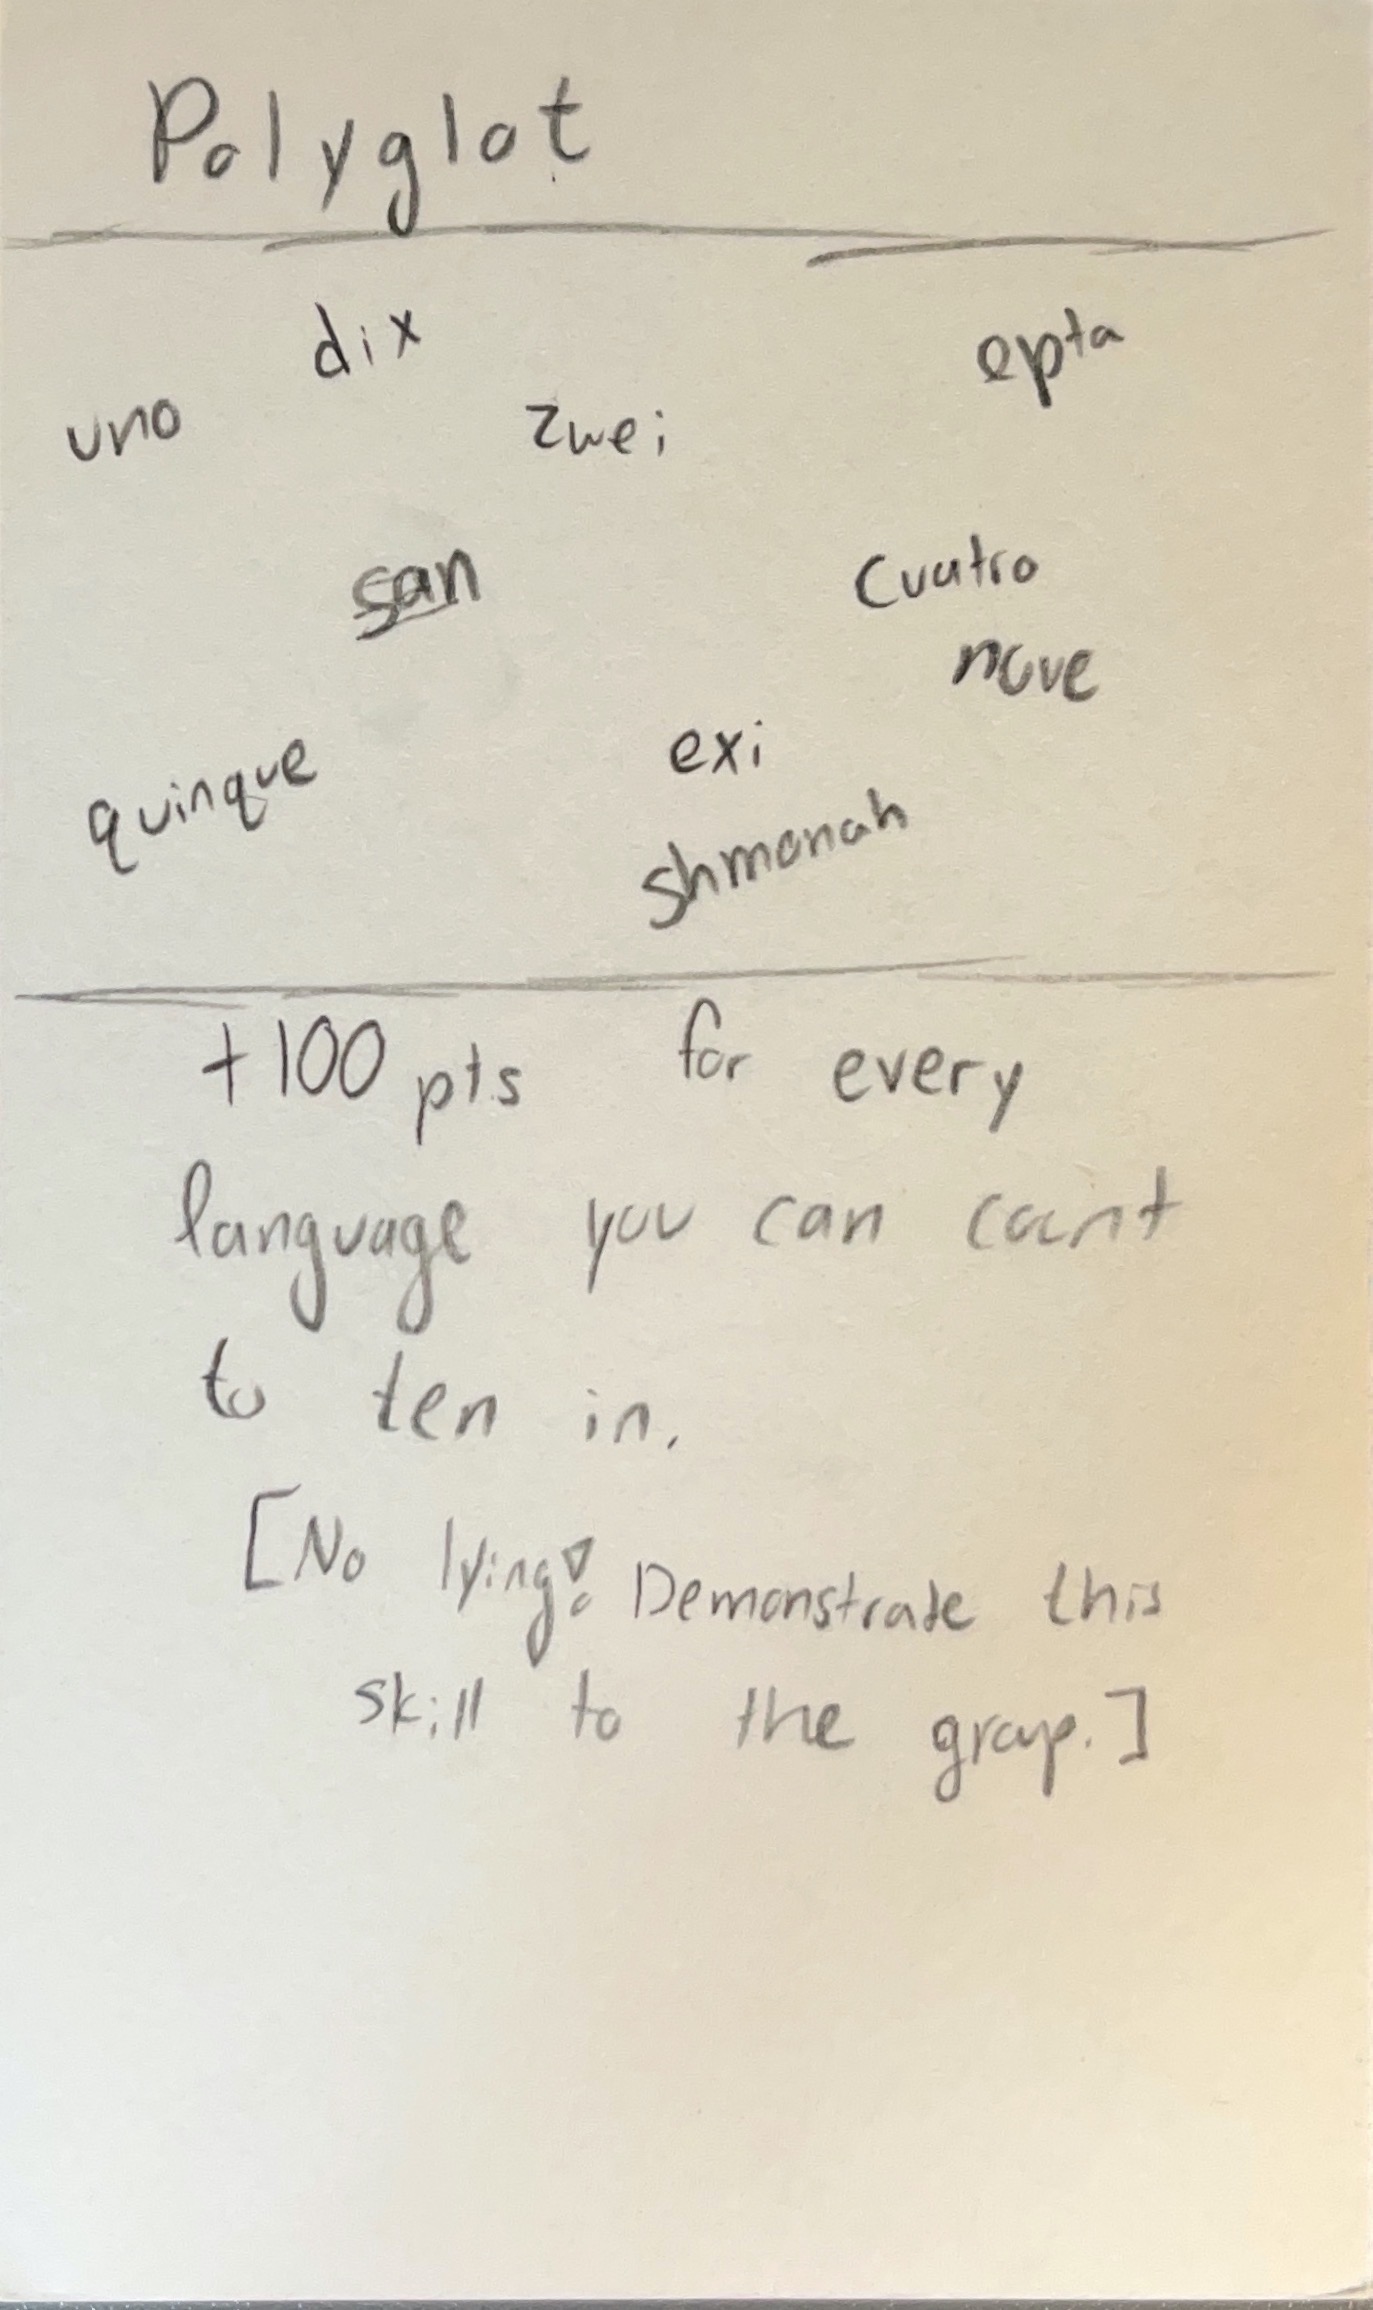 Polyglot
dix
epta
uno
zwei
san
cuatro
nove
exi
quinque
shmonah
+100 pts for every
language you can count
to ten in.
[No lying! Demonstrate this
skill to the group.]